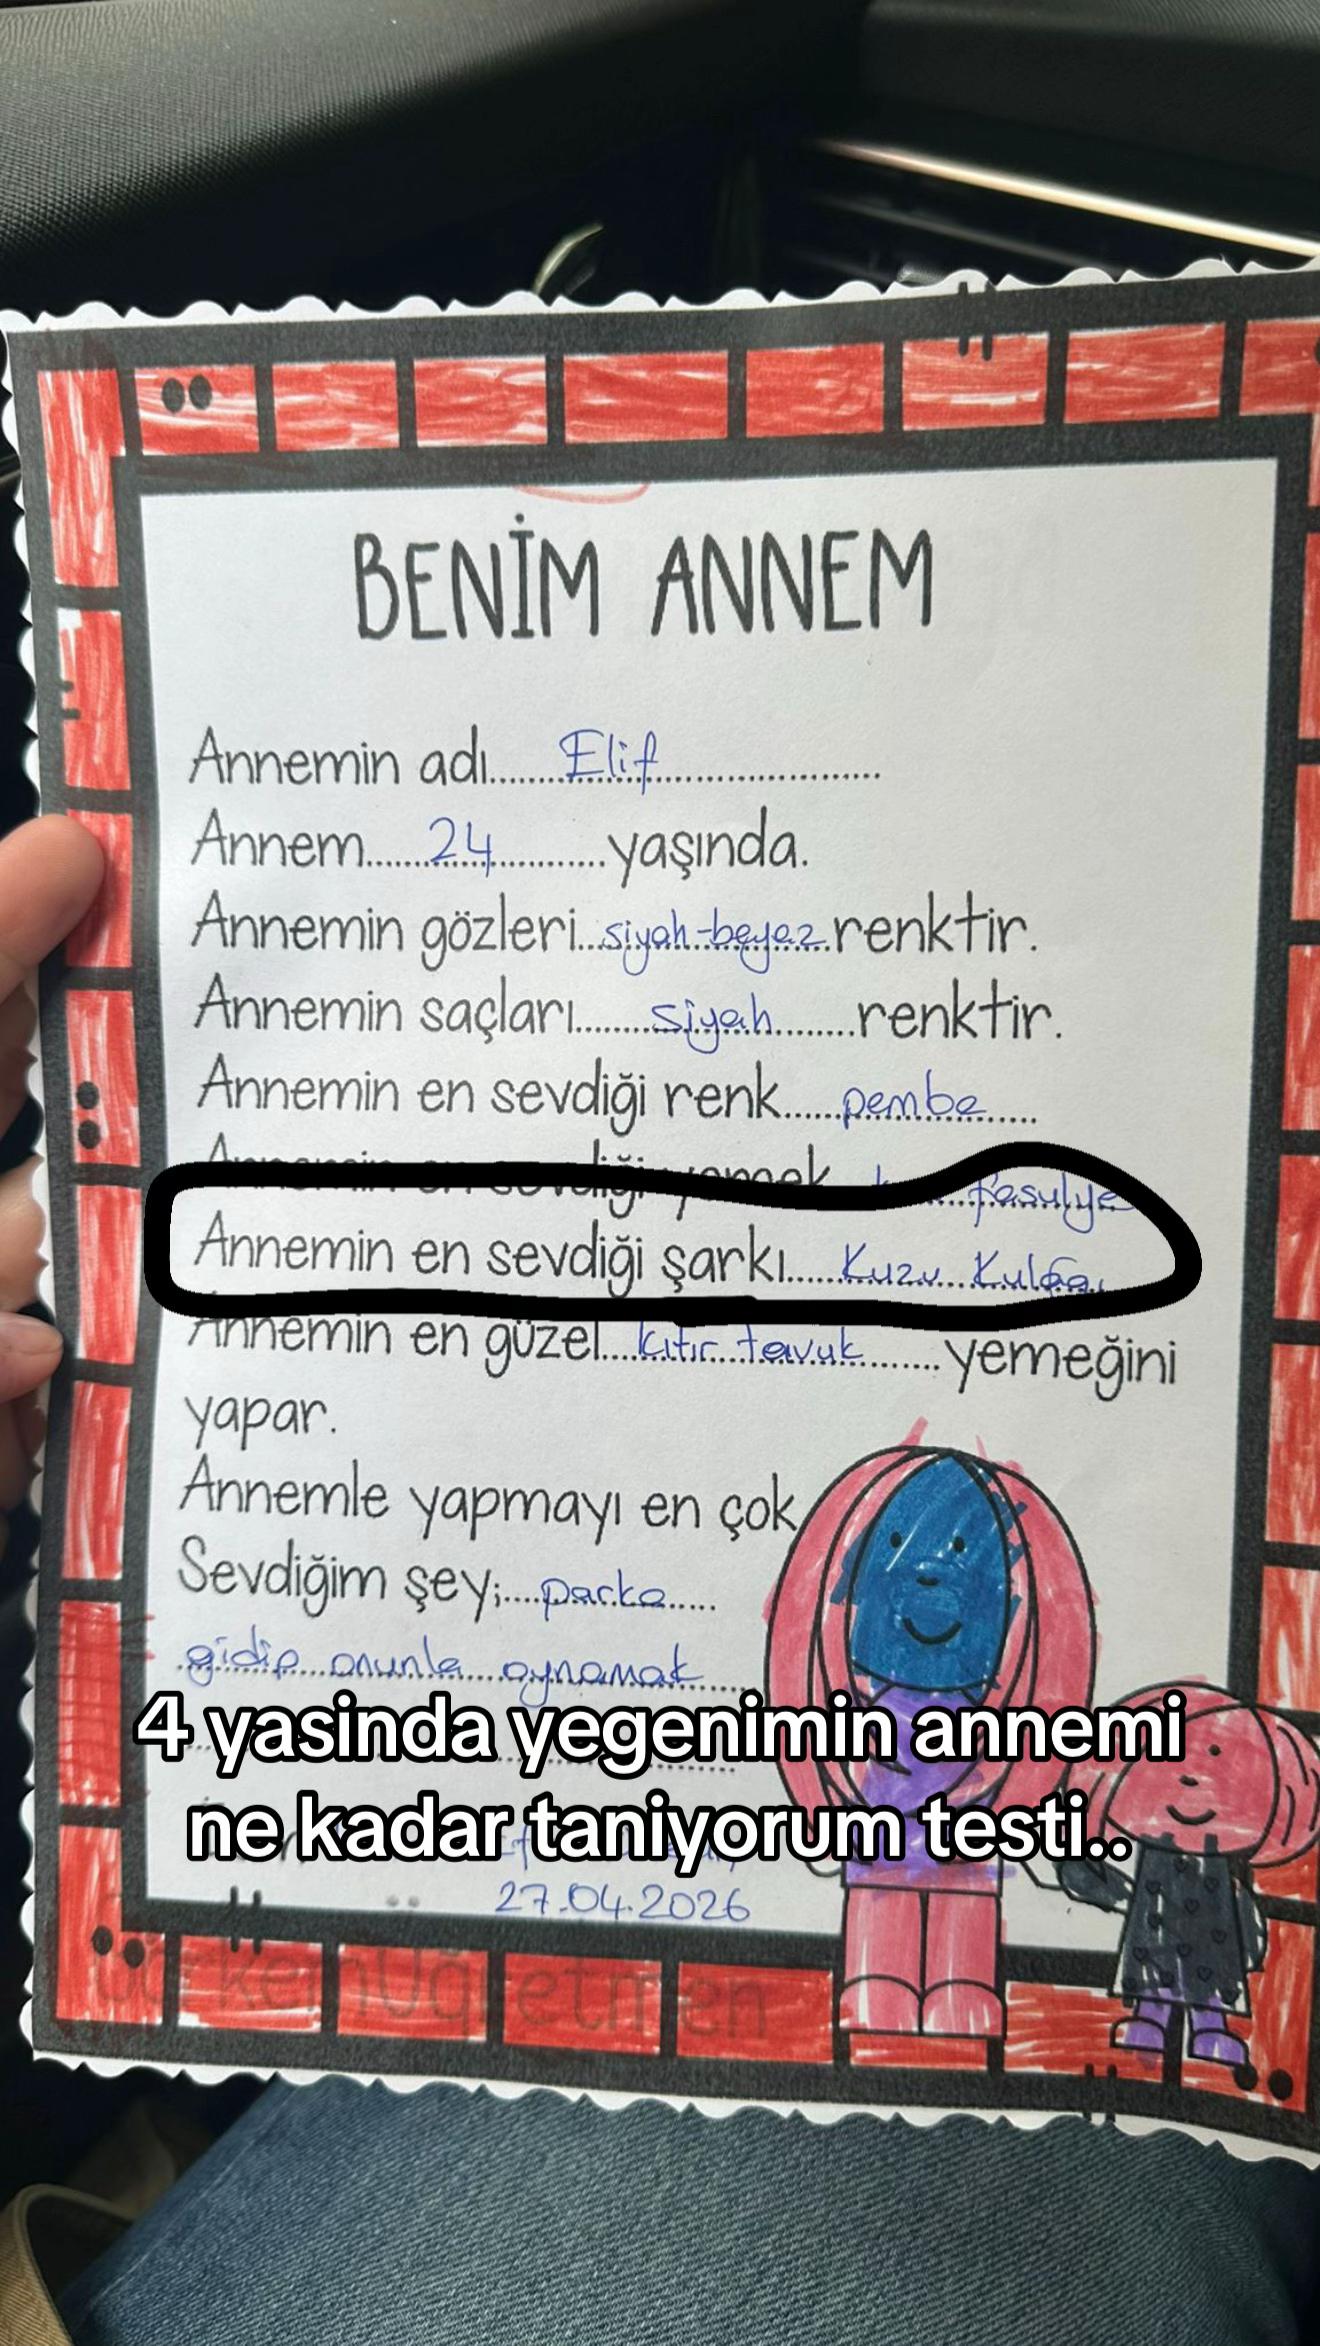 BENİM ANNEM
Annemin adı.......Elif.......................
Annem.......24...........yaşında.
Annemin gözleri...siyah-beyaz..renktir.
Annemin saçları........siyah........renktir.
Annemin en sevdiği renk......pembe.....
Annemin en sevdiği yemek fasulye
Annemin en sevdiği şarkı......Kuzu Kulağı
Annemin en güzel....kıtır tavuk........yemeğini
yapar.
Annemle yapmayı en çok
Sevdiğim şey;....parka.....
gidip onunla oynamak
4 yasinda yegenimin annemi
ne kadar taniyorum testi..
27.04.2026